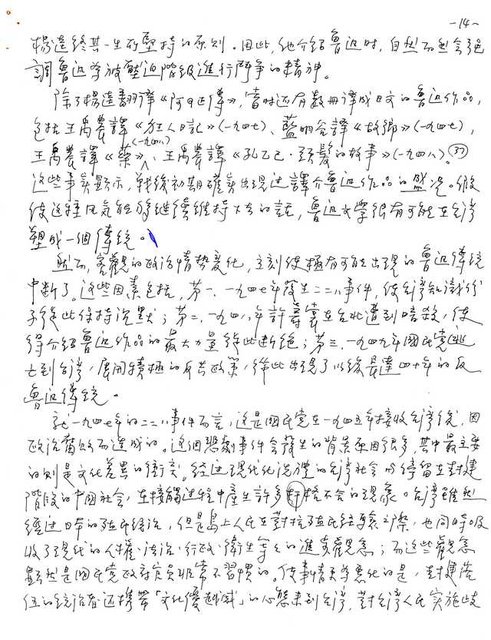 -14-
楊逵終其一生所堅持的原則。因此,他介紹魯迅時,自然而然會強
調魯迅掌被壓迫階級進行鬥爭的精神。
除了楊逵翻譯《阿Q正傳》,當時还有數冊譯成日文的魯迅作品,
包括王禹農譯《狂人日記》(一九四七)、藍明谷譯《故鄉》(一九四七),
王禹農譯《藥》(一九四八)、王禹農譯《孔乙己·頭髮的故事》(一九四八)。(37)
这些事实顯示,戰後初期確实出現过譯介魯迅作品的盛況。假
使这種風氣能夠繼續維持下去的話,魯迅文學很有可能在台灣
塑成一個傳統。
然而,客觀的政治情勢变化,立刻使極有可能出現的魯迅傳統
中断了。这些因素包括,第一、一九四七年發生二二八事件,使台灣知識份
子從此保持沉默;第二、一九四八年許壽裳在台北遭到暗殺,使
得介紹魯迅作品的最大力量從此断絕;第三、一九四九年國民党逃
亡到台灣,展開積極的反共政策,從此出現了以後長達四十年的反
魯迅傳統。
就一九四七年的二二八事件而言,这是國民党在一九四五年接收台灣後,因
政治腐敗而造成的。这個悲劇事件会發生的背景原因很多,其中最主要
的則是文化差異的衝突。经过了現代化洗禮的台灣社会,与停留在封建
階段的中國社会,在接觸过程中產生許多扞格不合的現象。台灣雖然
經过日本的殖民統治,但是島上人民在對抗殖民經驗之際,也同時吸
收了現代的人權、法治、行政、衛生等等的進步觀念;而这些觀念
顯然是國民党政府官員非常不習慣的。使事情更為惡化的是,對建落
伍的統治者还携帶「文化優越感」的心態来到台灣,對台灣人民实施歧